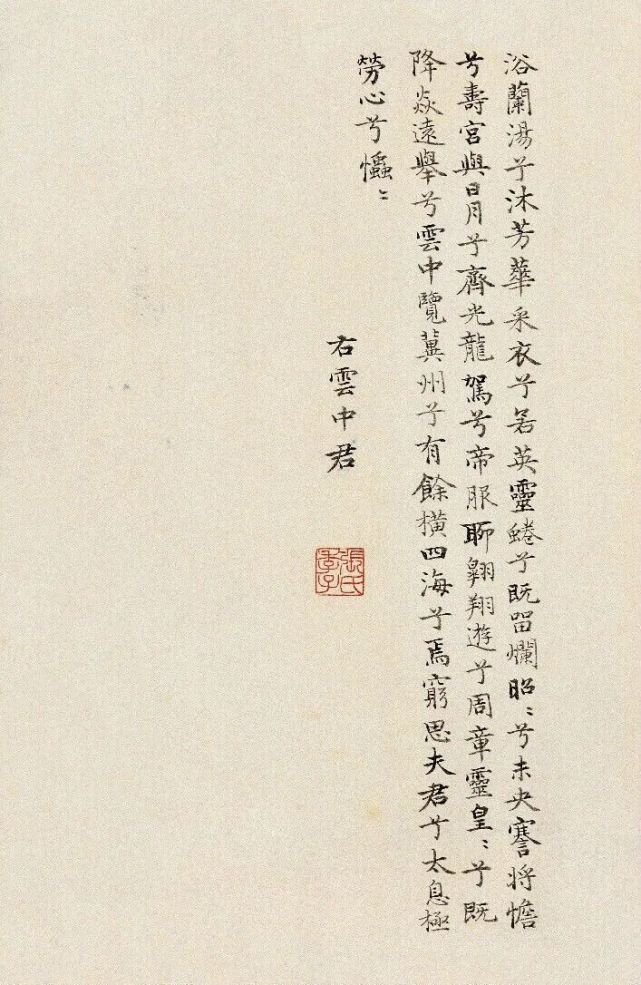 浴蘭湯兮沐芳華采衣兮若英靈蜷兮既留爛昭〻兮未央謇將憺
兮壽宮與日月兮齊光龍駕兮帝服聊翱翔遊兮周章靈皇〻兮既
降焱遠舉兮雲中覽冀州兮有餘橫四海兮焉窮思夫君兮太息極
勞心兮𢥞〻
右雲中君
張氏季子